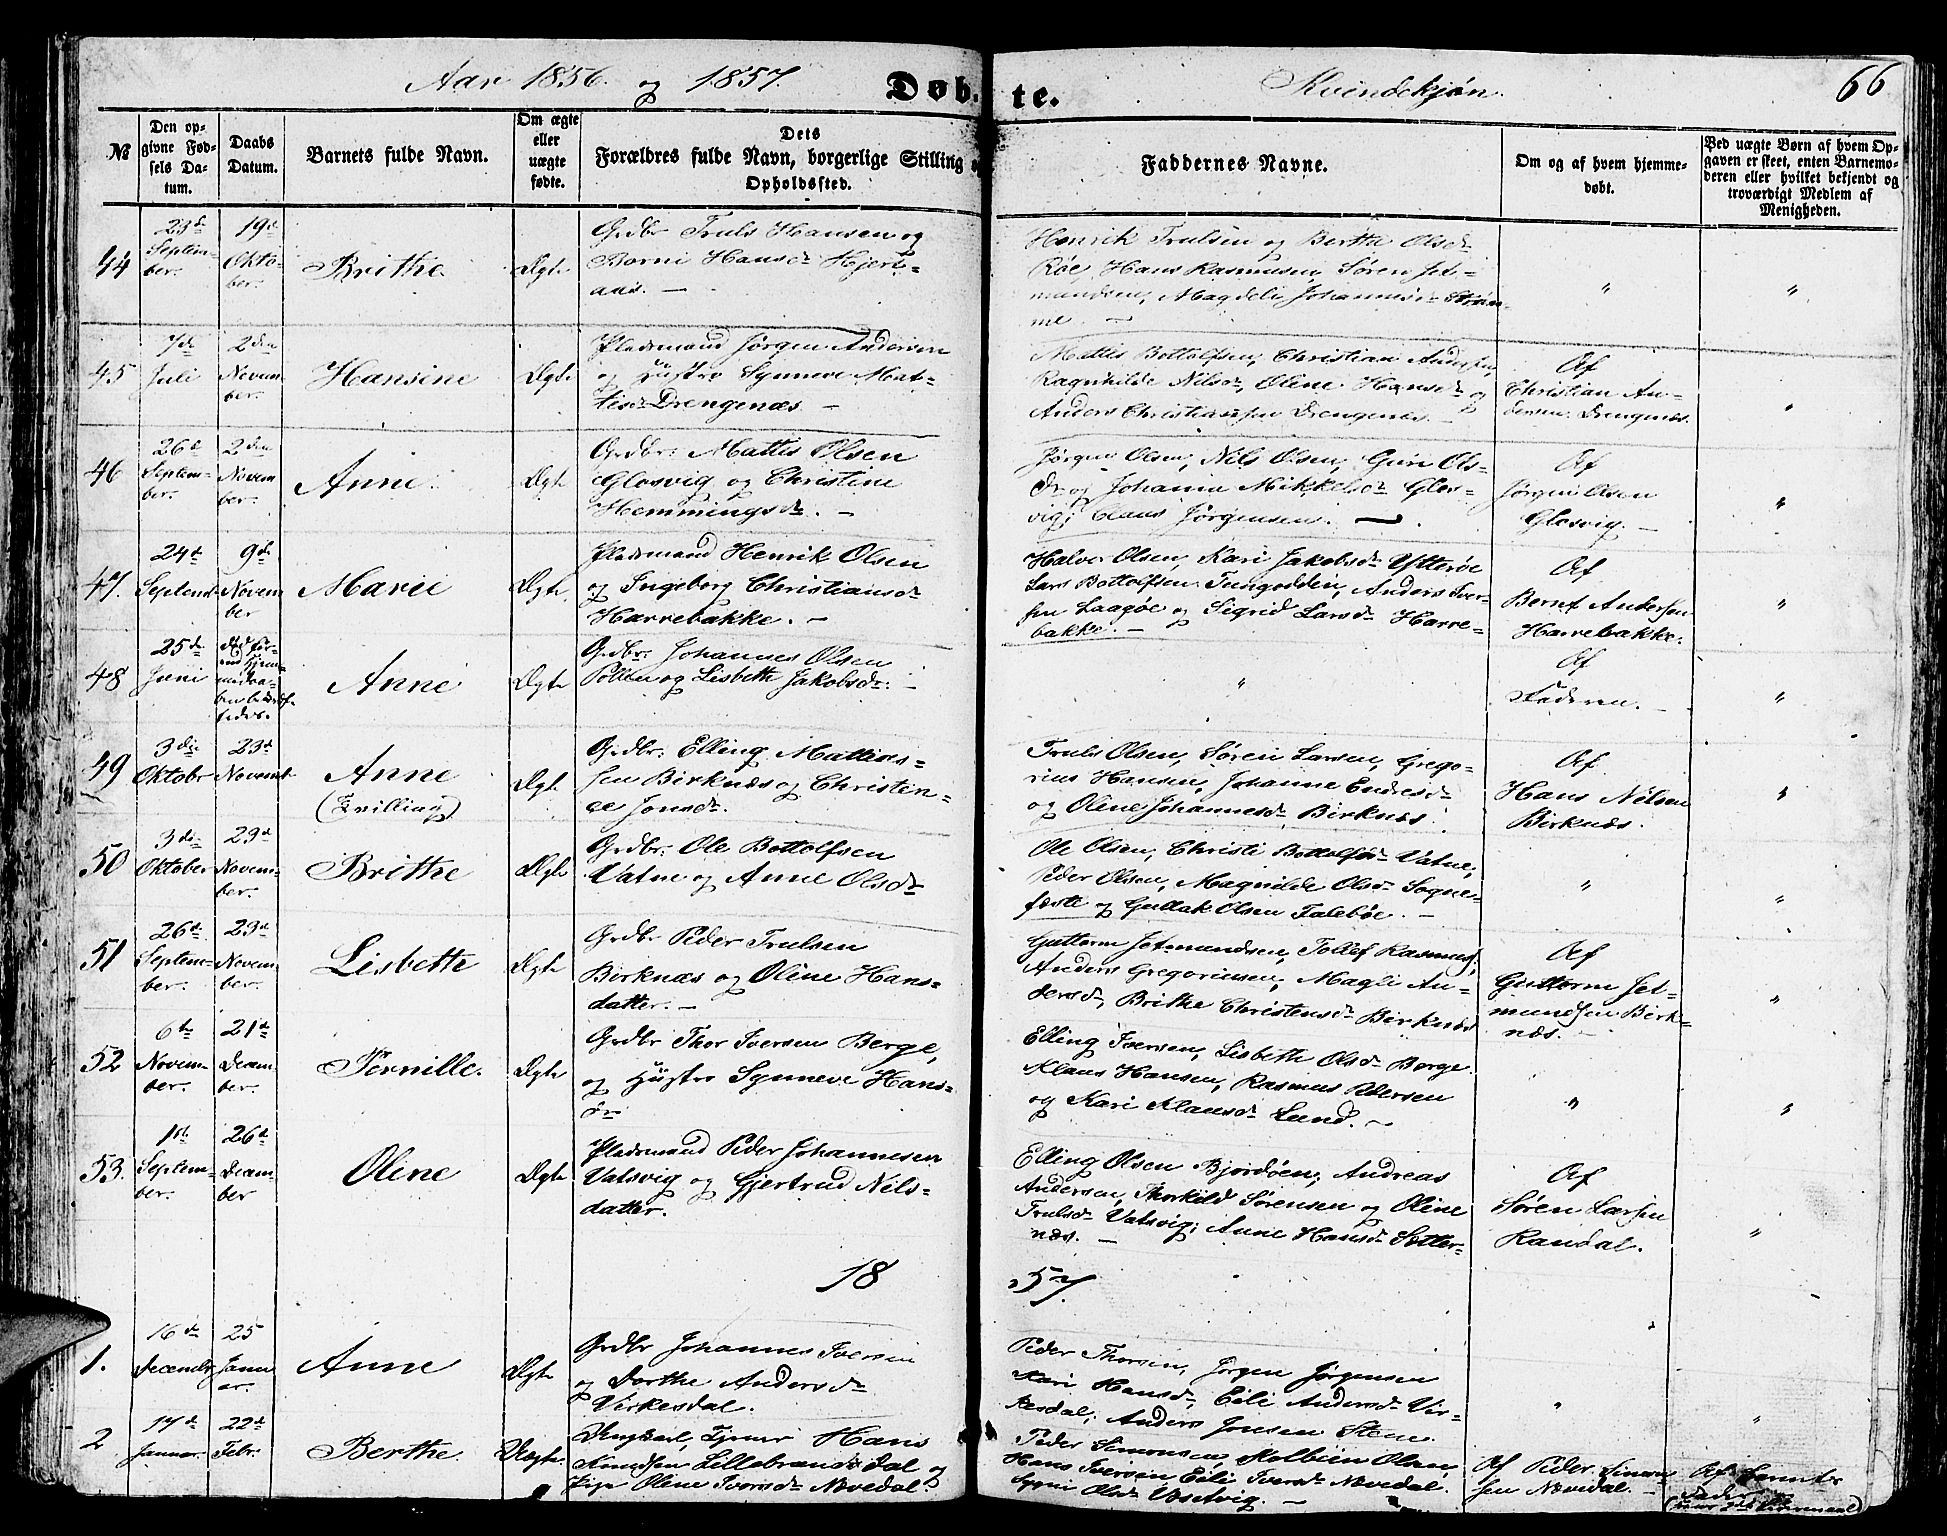 Aar 1856. og 1857. Døb- te. Kvindekjøn. 66
№
Den opgivne Fødsels Datum.
Daabs Datum.
Barnets fulde Navn.
Om ægte eller uægte fødte.
Dets
Forældres fulde Navn, borgerlige Stilling
Opholdssted.
Faddernes Navne.
Om og af hvem hjemmedøbt.
Ved uægte Børn af hvem Opgaven er skeet, enten Barnemoderen eller hvilket bekjendt og troværdigt Medlem af Menigheden.
44
23de
September.
19de
Oktober.
Brithe
Ægte
Grdbr Truls Hansen og
Borni Hansdr Hjert-
aas. —
Henrik Trulsen og Berthe Olsdr
Røe, Hans Rasmusen, Søren Jet-
mundsen, Magdeli Johannesdr Strøm-
me. —
"
"
45
7de
Juli
2den
November.
Hansine
Ægte
Pladsmand Jørgen Andersen
og Hustro Synneve Mat-
tisdr Drengenæs —
Mattis Bottolfsen, Christian Andersen,
Ragnhilde Nilsdr, Oline Hansdr og
Anders Christiansen Drengenæs. —
Af
Christian An-
dersen Drengenæs.
"
46
26de
September.
2den
November.
Anne.
Ægte
Grdbr: Mattis Olsen
Glosvig og Christine
Hemmingsdr. —
Jørgen Olsen, Nils Olsen, Guri Ols-
dr og Johanne Mikkelsdr Glos-
vig; Claus Jørgensen. —
Af
Jørgen Olsen
Glosvig. —
"
47.
24de
Septemb
9de
November
Marie
Ægte.
Pladsmand Henrik Olsen
og Ingeborg Christiansdr
Harrebakke. —
Halvor Olsen, Kari Jakobsdr Ytterøe
Lars Bottolfsen Tungodden, Anders Iver-
sen Laagøe og Sigrid Larsdr Harre-
bakke. —
Af
Bernt Andersen
Harrebakke.
"
48
25de
Juni
Anne
Ægte
Grdbr: Johannes Olsen
Pollen og Lisbeth Jakobsdr. —
"
Af
Faderen. —
"
49
3die
Oktobr
23de
Novemb
Anne
(Tvilling)
Ægte
Grdbr: Elling Mattias-
sen Birknæs og Christin-
ee Jonsdr.
Truls Olsen, Søren Larsen, Grego-
rius Hansen, Johanne Endresdr
og Oline Johannesdr Birknæs.
Af
Hans Nilsen
Birknæs.
"
50
3die
Oktober
23de
November.
Brithe
Ægte
Grdbr: Ole Bottolfsen
Vatne og Anne Olsdr
Ole Olsen, Christi Bottolfsdr Vatne,
Peder Olsen, Magnilde Olsdr Sogne-
fæste og Gullak Olsen Talebøe. —
"
"
51
26de
September.
23de
November.
Lisbette
Ægte
Grdbr Peder Trulsen
Birknæs og Oline Hans-
datter. —
Guttorm Jetmundsen, Tollef Rasmus.
Anders Gregoriusen, Magli An-
dersdr, Brithe Christensdr Birknæs
Af
Guttorm Jet-
mundsen Birk-
næs. —
"
52
6te
November.
21de
December.
Pernille.
Ægte
Grdbr Thor Iversen Berge,
og Hustro Synneve Hans-
dr
Elling Iversen, Lisbeth Olsdr Berge.
Klaus Hansen, Rasmus Pedersen
og Kari Klausdr Lund. —
"
"
53.
1ste
September.
26de
December
Oline
Ægte
Pladsmand Peder Johannesen
Vatsvig og Gjertrud Nils-
datter.
Elling Olsen Bjordøen, Andreas
Andersen, Thorkild Sørensen og Oline
Trulsdr Vatsvig; Anne Hansdr Sætter-
næs. —
Af
Søren Larsen
Randal.
"
18 57.
1.
16de
Decembr
25
Januar.
Anne
Ægte
Grdbr Johannes Iversen
og Dorthe Andersdr
Virkesdal.
Peder Thorsen, Jørgen Jørgensen
Kari Hansdr Eili Andersdr Vir-
kesdal; Anders Jonsen Steen.
"
"
2
17de
Januar.
22de
Febr.
Berthe.
Uægte.
Ungkarl, Hans
Knudsen Lillebrandsdal og
Pige Oline Iversdr Nøvedal.
Peder Simonsen, Kolbein Olsen,
Hans Iversen Eili Iversdr Nøvedal.
Olsdr Vosetvig. —
Af Peder Simon-
sen Nøvedal. —
Af Barnets
Fader